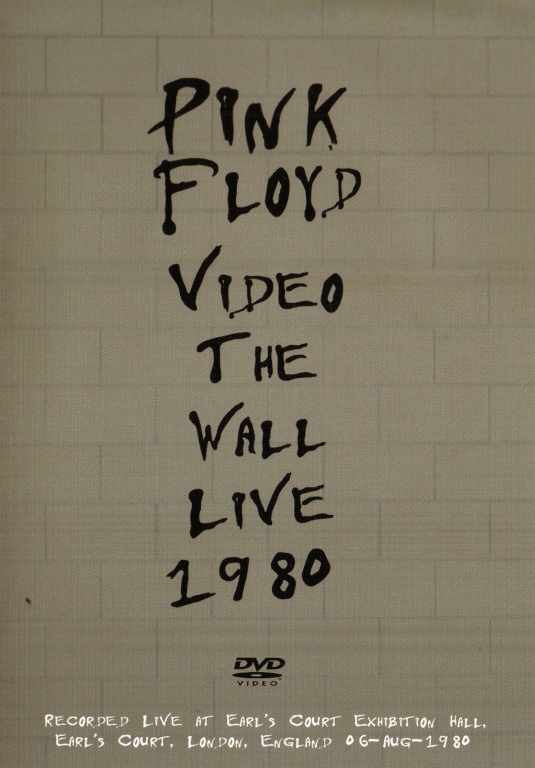 PINK
FLOYD
VIDEO
THE
WALL
LIVE
1980
DVD
VIDEO
RECORDED LIVE AT EARL'S COURT EXHIBITION HALL,
EARL'S COURT, LONDON, ENGLAND 06-AUG-1980